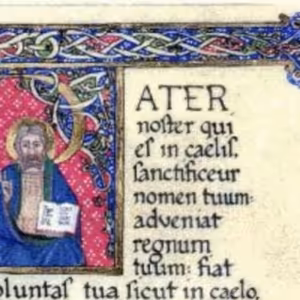 PATER
noster qui
es in caelis,
sanctificeur
nomen tuum:
adveniat
regnum
tuum: fiat
voluntas tua sicut in caelo,